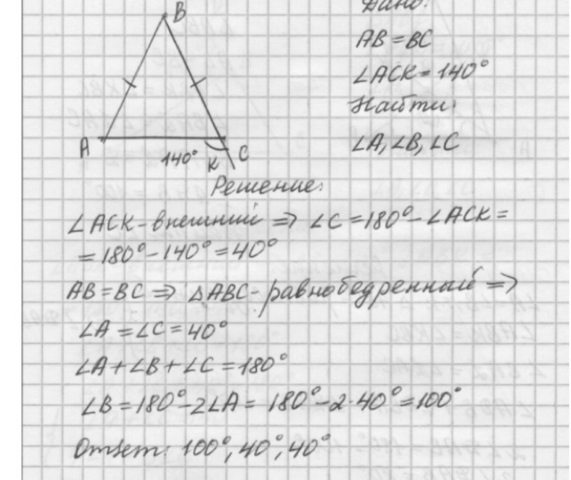 B
Дано:
AB = BC
∠ACK = 140°
Найти:
∠A, ∠B, ∠C
A
140°
K
C
Решение:
∠ACK - внешний => ∠C = 180° - ∠ACK =
= 180° - 140° = 40°
AB = BC => △ABC - равнобедренный =>
∠A = ∠C = 40°
∠A + ∠B + ∠C = 180°
∠B = 180° - 2∠A = 180° - 2·40° = 100°
Ответ: 100°, 40°, 40°